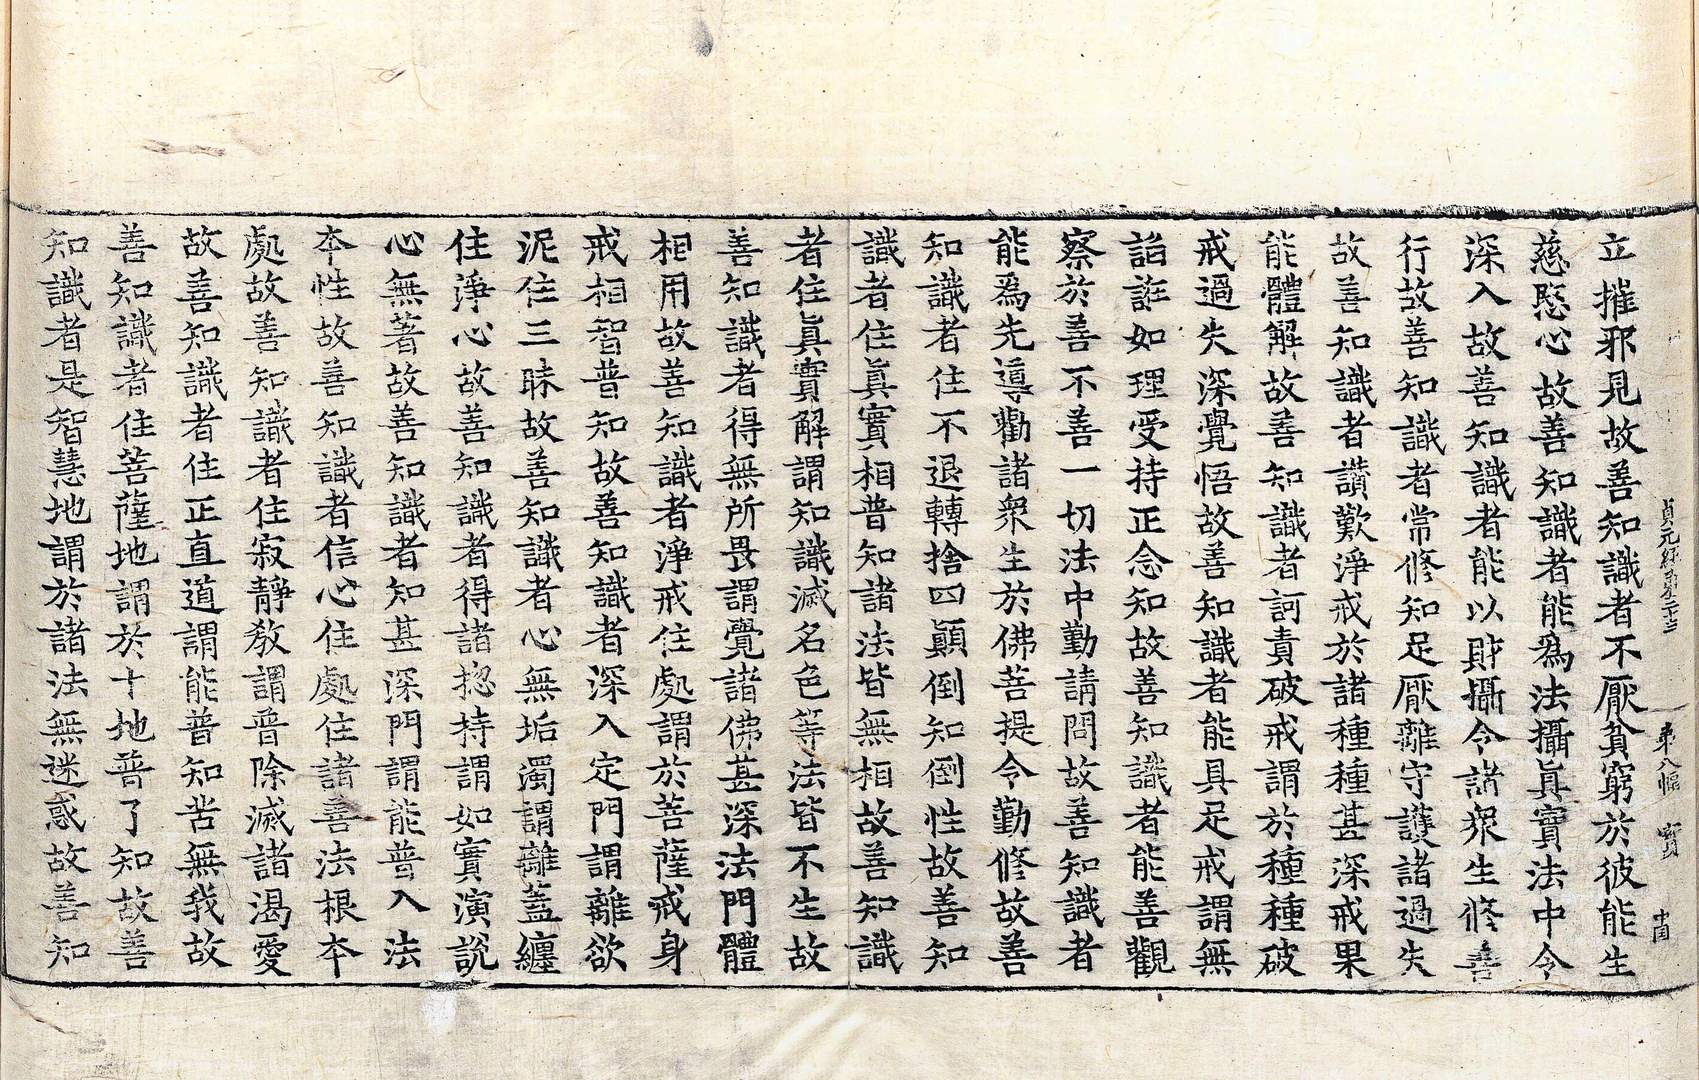 貞元經 第八幅 寳 十囯
立摧邪見故善知識者不厭貧窮於彼能生
慈愍心故善知識者能爲法攝眞實法中令
深入故善知識者能以財攝令諸衆生修善
行故善知識者常修知足厭離守護諸過失
故善知識者讚歎淨戒於諸種種甚深戒果
能體解故善知識者訶責破戒謂於種種破
戒過失深覺悟故善知識者能具足戒謂無
諂誑如理受持正念知故善知識者能善觀
察於善不善一切法中勤請問故善知識者
能爲先導勸諸衆生於佛菩提令勤修故善
知識者住不退轉捨四顚倒知倒性故善知
識者住眞實相普知諸法皆無相故善知識
者住眞實解謂知識滅名色等法皆不生故
善知識者得無所畏謂覺諸佛甚深法門體
相用故善知識者淨戒住處謂於菩薩戒身
戒相智普知故善知識者深入定門謂離欲
泥住三昧故善知識者心無垢濁謂離蓋纏
住淨心故善知識者得諸揔持謂如實演說
心無著故善知識者知甚深門謂能普入法
夲性故善知識者信心住處住諸善法根夲
處故善知識者住寂靜敎謂普除滅諸渴愛
故善知識者住正直道謂能普知苦無我故
善知識者住菩薩地謂於十地普了知故善
知識者是智慧地謂於諸法無迷惑故善知